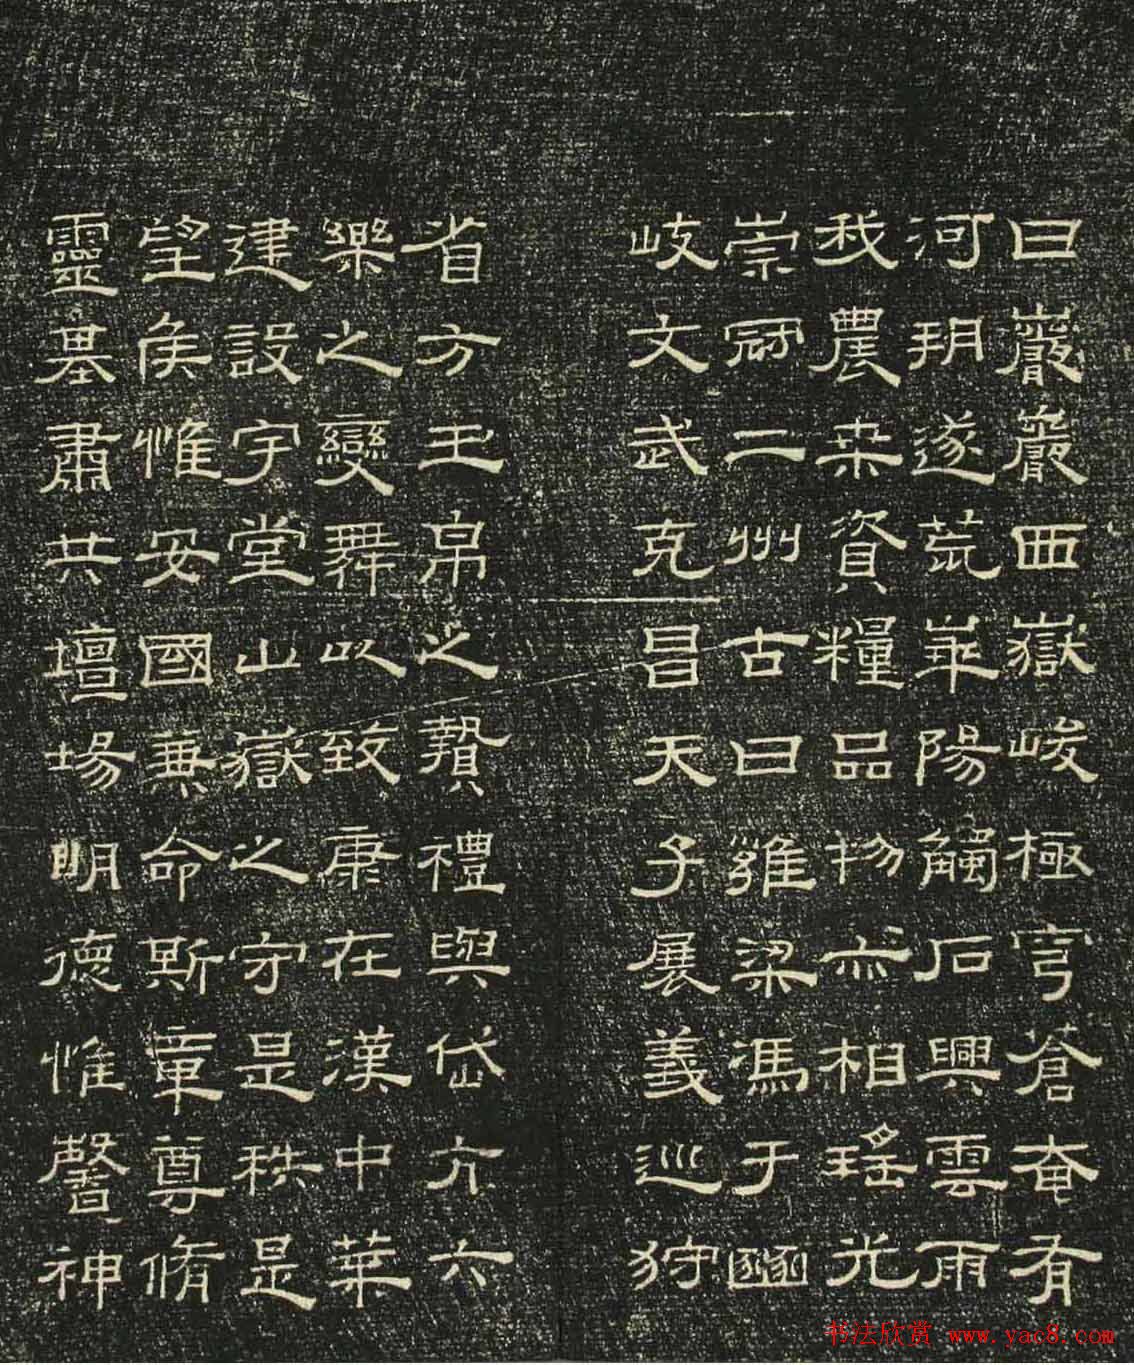 曰巖巖西嶽峻極穹蒼奄有
河朔遂荒華陽觸石興雲雨
我農桑資糧品物亦相瑤光
崇冠二州古曰雍梁馮于豳
岐文武克昌天子展義巡狩
省方玉帛之贄禮與岱亢六
樂之變舞以致康在漢中葉
建設宇堂山嶽之守是秩是
望侯惟安國兼命斯章尊脩
靈基肅共壇場明德惟馨神
书法欣赏 www.yac8.com